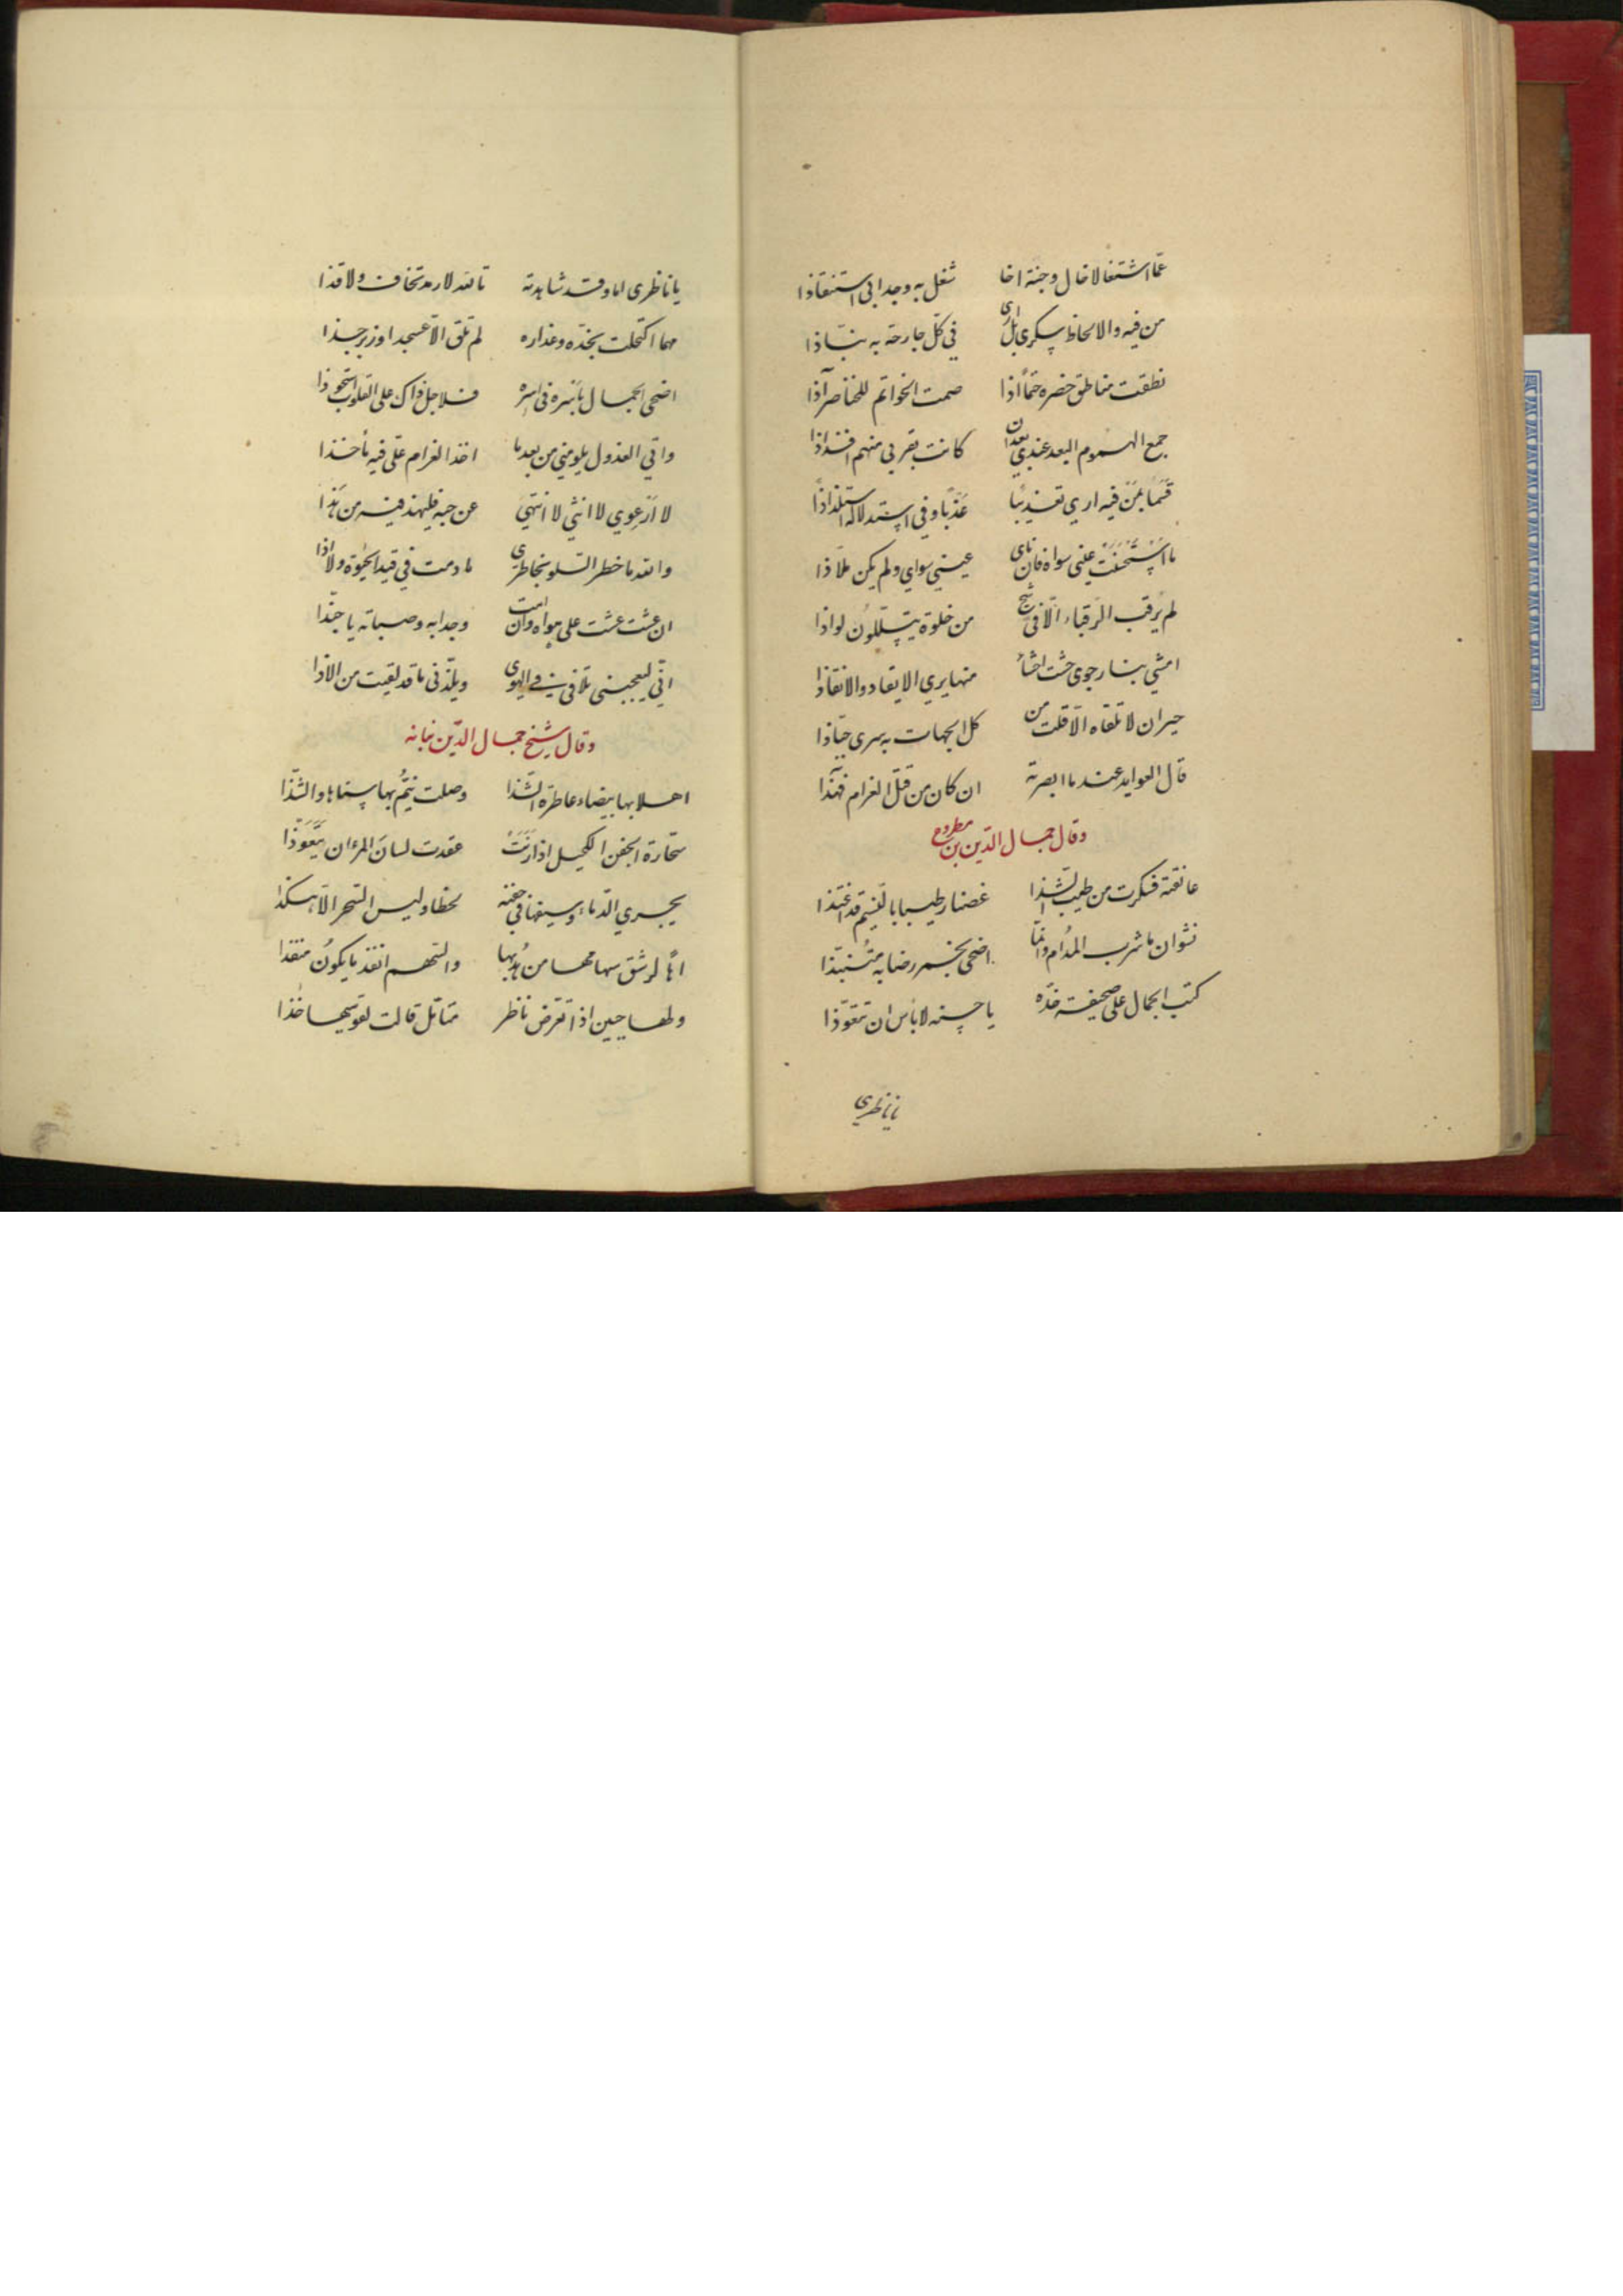 عمّا اشتغالا خال وجنة اخا شغل به وجدا ابى استنقاذا
من فيه والالحاظ سكرى بل ارى في كلّ جارحة به نبّاذا
نطقت مناطق خصره ختمًا اذا صمت الخواتم للخناصر آذا
جمع الهموم البعد عندي بعد ان كانت بقربي منهم افذاذا
قسما بمن فيه اري تعذيبا عذبًا وفي استدلاله استلذاذا
ما استحسنت عيني سواه فان نأى عيني سواي ولم يكن ملّاذا
لم يرقب الرّقباء الّا في شج من خلوة يتسلّلون لواذا
امشي بنار جوى حشت احشائه منها يري الايقاد والانقاذا
حيران لا تلقاه الّا قلت من كل الجهات به سرى جبّاذا
قال العوايد عندما ابصرنه ان كان من قتل الغرام فهذا
وقال جمال الدّين بن مطروح
عانقته فسكرت من طيب الشّذا غصنا رطيبا بالنّسيم قد اغتذا
نشوان ما شرب المدام وانّما اضحى بخمر رضابه متنبّذا
كتب الجمال على صحيفة خدّه يا حسنه لا بأس ان تتعوّذا
ياناظري
ياناظرى اما وقد شاهدته تالله لا رمد تخاف ولا قذا
مهما اكتحلت بخدّه وعذاره لم تلق الّا عسجدا وزبرجذا
اضحى الجمال بأسره فى اسره فلاجل ذاك على القلوب استحوذا
واتي العذول يلومني من بعد ما اخذ الغرام علّي فيه مأخذا
لا ارعوي لا انثني لا انتهي عن حبه فليهذ فيه من هذا
والله ما خطر السلو بخاطري ما دمت في قيد الحيوة ولا اذا
ان عشت عشت على هواه وان امت وجدا به وصبابه يا حبّذا
انّي ليعجبنى تلافى في الهوى ويلذّنى ما قد لقيت من الاذا
وقال شيخ جمال الدّين نباته
اهلا بها بيضاء عاطرة الشّذا وصلت ينمّ بها سناها والشّذا
سحّارة الجفن الكحيل اذا رنت عقدت لسان المرء ان يتعوّذا
يجري الدّماء وسيفها في جفنه لحظا وليس السّحر الّا هكذا
اهًا لرشق سهامها من هدبها والسّهم انفذ ما يكون منقذا
ولها جبين اذا تعرّض ناظر متأمّل قالت لقوسيها خذا